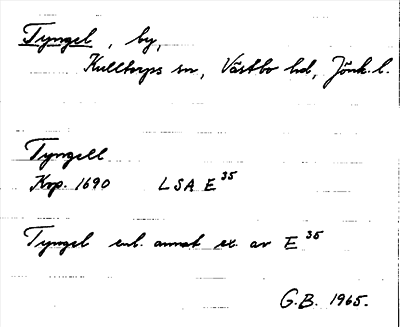 Tyngel, by,
Kulltorps sn, Västbo hd, Jönk. l.
Tyngell
Kop. 1690 LSA E 35
Tyngel enl. annat ex. av E 35
G.B. 1965.